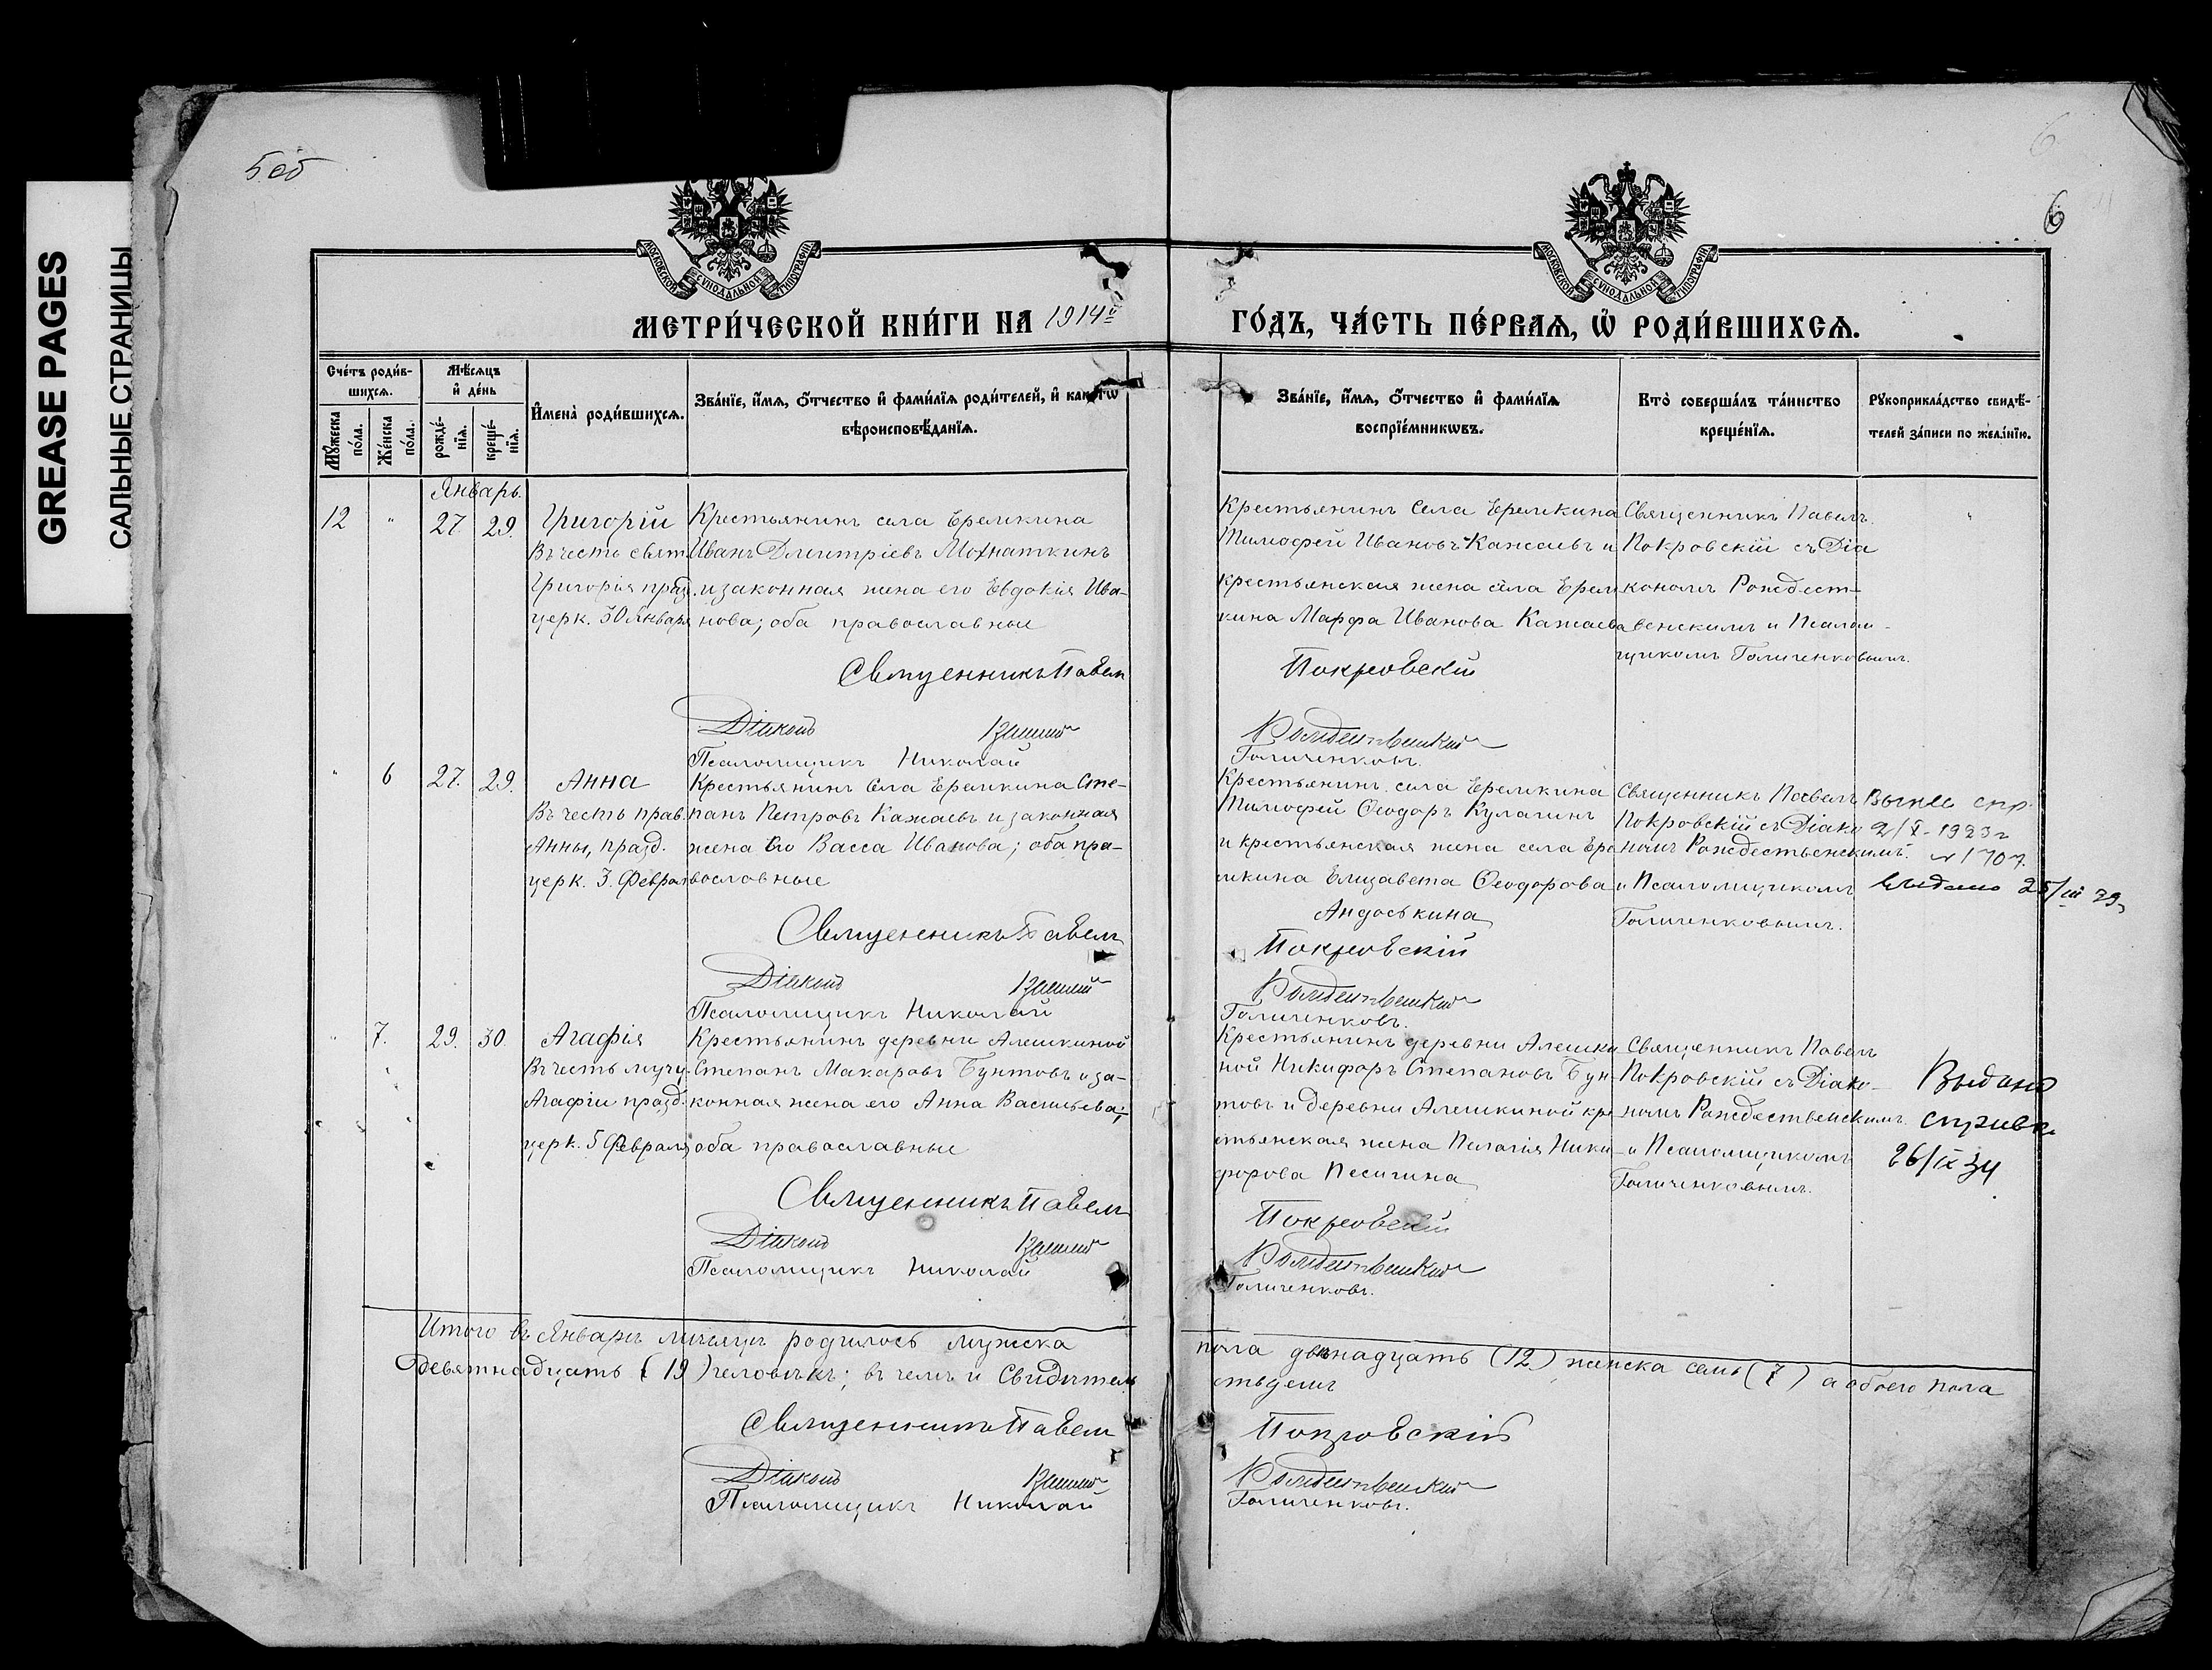 GREASE PAGES
САЛЬНЫЕ СТРАНИЦЫ
5 об
6
6
МОСКОВСКОЙ СѴНОДАЛЬНОЙ ТИПОГРАФІИ
МОСКОВСКОЙ СѴНОДАЛЬНОЙ ТИПОГРАФІИ
МЕТРИ́ЧЕСКОЙ КНИ́ГИ НА 1914й
ГО́ДЪ, ЧА́СТЬ ПЕ́РВАѦ, Ѡ҆ РОДИ́ВШИХСѦ.
Сче́тъ роди́в-
шихсѧ.
Мꙋ́жеска по́ла.
Же́нска по́ла.
Мѣ́сѧцъ
и҆ де́нь
рожде́-нїѧ.
креще́-нїѧ.
И҆мена̀ роди́вшихсѧ.
Зва́нїе, и҆́мѧ, ѻ҆́тчество и҆ фами́лїѧ роди́телей, и҆ како́гѡ
вѣроисповѣ́данїѧ.
Зва́нїе, и҆́мѧ, ѻ҆́тчество и҆ фами́лїѧ
воспрїе́мникѡвъ.
Кто̀ соверша́лъ та́инство
креще́нїѧ.
Рꙋкоприкла́дство свидѣ́-
телей за́писи по жела́нїю.
Январь.
12 " 27. 29.
Григорій
Въ честь свят.
Григорія празд.
церк. 30 Января
Крестьянинъ села Еремкина
Иванъ Дмитріевъ Мохнаткинъ
и законная жена его Евдокія Ива-
нова; оба православные
Священникъ Павелъ
Діаконъ
Псаломщикъ Николай
Крестьянинъ села Еремкина
Тимофей Ивановъ Кажаевъ и
крестьянская жена села Ерем-
кина Марфа Иванова Кажаева
Покровскій
Рождественскій
Голиченковъ.
Священникъ Павелъ
Покровскій съ Діа
кономъ Рождест-
венскимъ и Псалом-
щикомъ Голиченковымъ.
" 6 27. 29.
Анна
Въ честь прав.
Анны, празд.
церк. 3. Феврал
Крестьянинъ села Еремкина Сте-
панъ Петровъ Кажаевъ и законная
жена его Васса Иванова; оба пра-
вославные
Священникъ Павелъ
Діаконъ
Псаломщикъ Николай
Крестьянинъ села Еремкина
Тимофей Ѳеодоръ Кулагинъ
и крестьянская жена села Ере
мкина Елизавета Ѳеодорова
Андоськина
Покровскій
Рождественскій
Голиченковъ.
Священникъ Павелъ
Покровскій съ Діако
номъ Рождественскимъ.
и Псаломщикомъ
Голиченковымъ.
спр.
2/X-1923 г
№ 1707.
Выдано 25/III 39
" 7. 29. 30.
Агафія
Въ честь мучц.
Агафіи празд.
церк. 5 Февраля
Крестьянинъ деревни Алешкиной
Степанъ Макаровъ Бунтовъ и за-
конная жена его Анна Васильева;
оба православные
Священникъ Павелъ
Діаконъ
Псаломщикъ Николай
Крестьянинъ деревни Алешки
ной Никифоръ Степановъ Бун-
товъ и деревни Алешкиной кре
стьянская жена Пелагія Ники-
форова Песигина
Покровскій
Рождественскій
Голиченковъ.
Священникъ Павелъ
Покровскій съ Діако-
номъ Рождественскимъ.
и Псаломщикомъ
Голиченковымъ.
Выдано
справк.
26/IX 34
Итого въ Январѣ мѣсяцѣ родилось мужска пола двѣнадцать (12) женска семь (7) а обоего пола
девятнадцать (19) человѣкъ; въ чемъ и свидѣтельствуемъ
Священникъ Павелъ Покровскій
Діаконъ Рождественскій
Псаломщикъ Николай Голиченковъ.